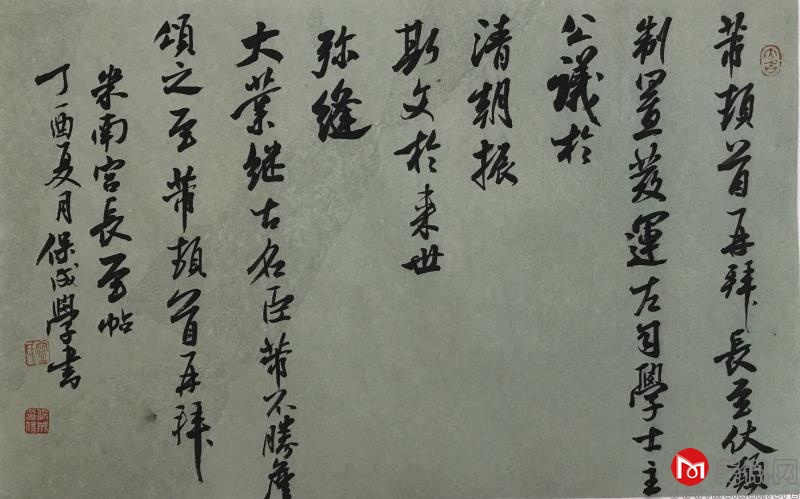 芾頓首再拜長至伏願
制置發運左司學士主
公議於
清朝振
斯文於来世
弥縫
大業继古名臣芾不勝詹
頌之至芾頓首再拜
米南宮長至帖
丁酉夏月保成學書
大吉